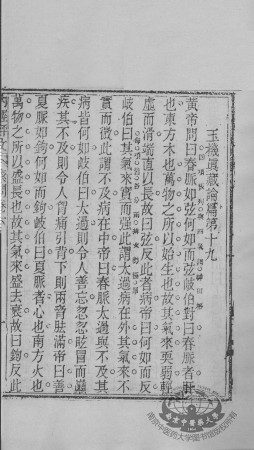 玉機真藏論篇第十九
黃帝問曰春脈如弦何如而弦歧伯對曰春脈者肝
也東方木也萬物之所以始生也故其氣來耎弱輕
虛而滑端直以長故曰弦反此者病帝曰何如而反
歧伯曰其氣來實而強此謂太過病在外其氣來不
實而微此謂不及病在中帝曰春脈太過與不及其
病皆何如歧伯曰太過則令人善忘忽忽眩冒而巔
疾其不及則令人胷痛引背下則兩脅胠滿帝曰善
夏脈如鉤何如而鉤歧伯曰夏脈者心也南方火也
萬物之所以盛長也故其氣來盛去衰故曰鉤反此
南京中医药大学图书馆版权所有